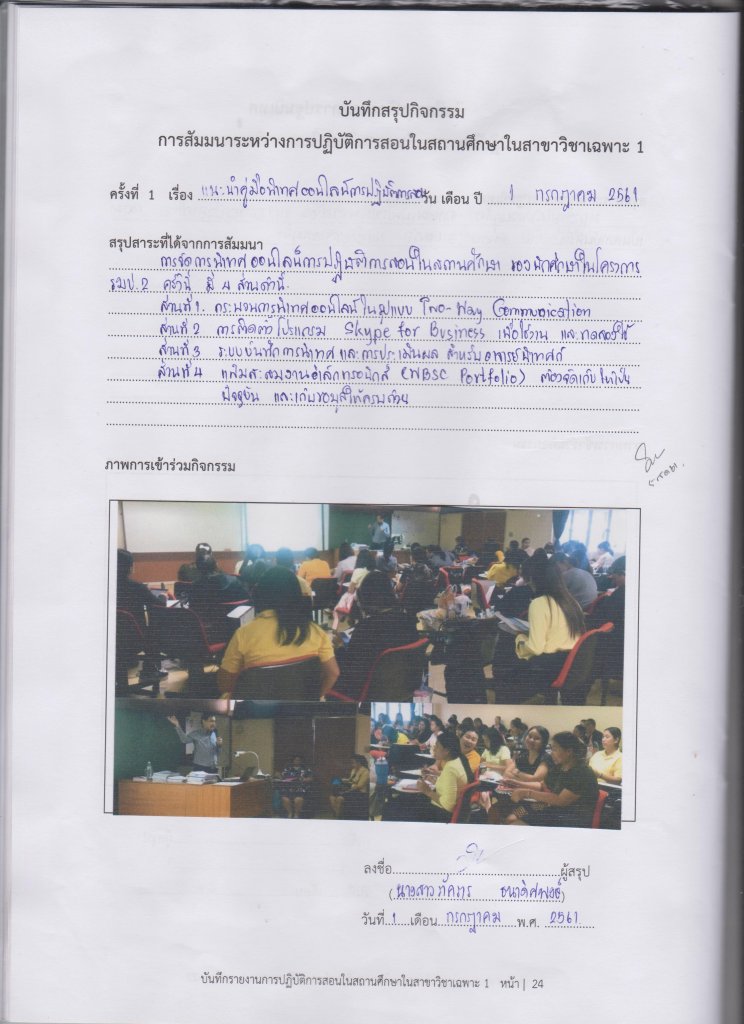 บันทึกสรุปกิจกรรม
การสัมมนาระหว่างการปฏิบัติการสอนในสถานศึกษาในสาขาวิชาเฉพาะ 1
ครั้งที่ 1 เรื่อง แนะนำคู่มือนิเทศออนไลน์การปฏิบัติการสอน วัน เดือน ปี 1 กรกฎาคม 2561
สรุปสาระที่ได้จากการสัมมนา
การจัดการนิเทศออนไลน์การปฏิบัติการสอนในสถานศึกษา ของนักศึกษาในโครงการ
ครั้งนี้ มี 4 ส่วนดังนี้
ส่วนที่ 1. กระบวนการนิเทศออนไลน์ในรูปแบบ Two-Way Communication
ส่วนที่ 2 การติดตั้งโปรแกรม Skype for Business เพื่อใช้งาน และทดลองใช้
ส่วนที่ 3 ระบบบันทึกการนิเทศและการประเมินผล สำหรับอาจารย์นิเทศก์
ส่วนที่ 4 แฟ้มสะสมงานอิเล็กทรอนิกส์ (WBSC Portfolio) ต้องจัดเก็บให้เป็น
ปัจจุบัน และเก็บข้อมูลให้ครบถ้วน
ภาพการเข้าร่วมกิจกรรม
ลงชื่อ ผู้สรุป
(นางสาว)
วันที่ 1 เดือน กรกฎาคม พ.ศ. 2561
บันทึกรายงานการปฏิบัติการสอนในสถานศึกษาในสาขาวิชาเฉพาะ 1 หน้า | 24